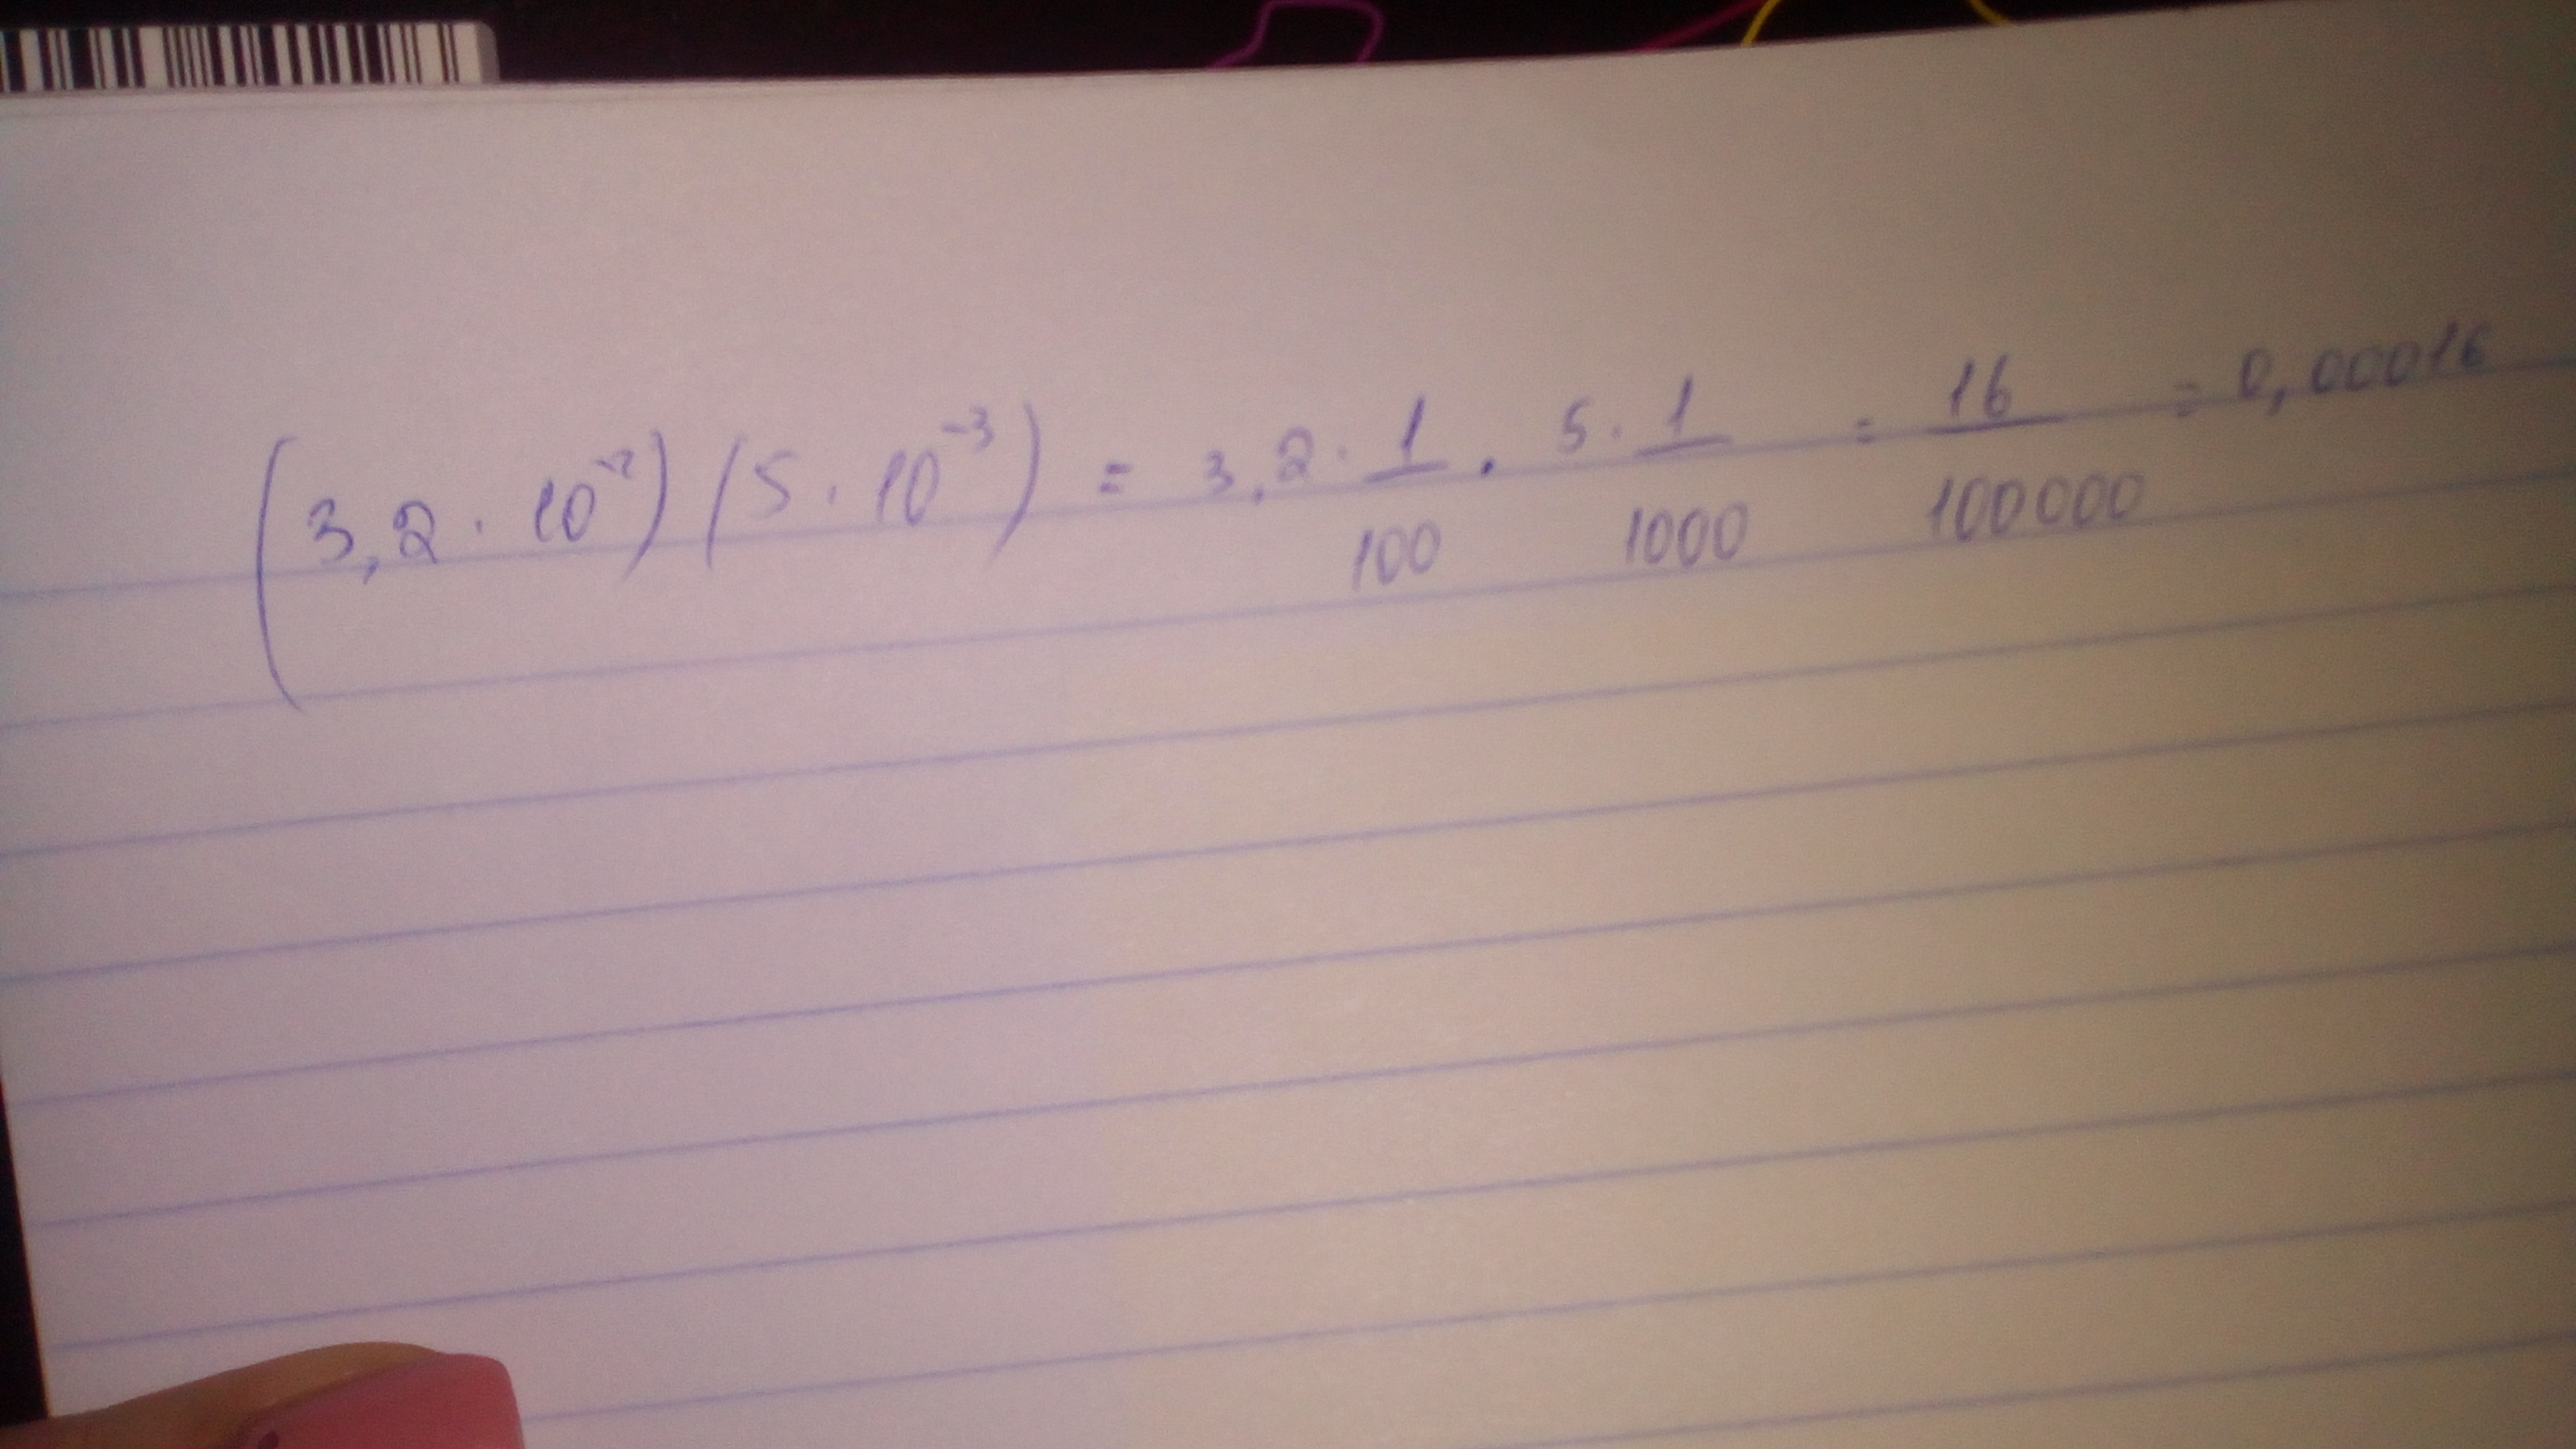 (3,2 · 10⁻²) (5 · 10⁻³) = 3,2 · 1/100 · 5 · 1/1000 = 16/100000 = 0,00016